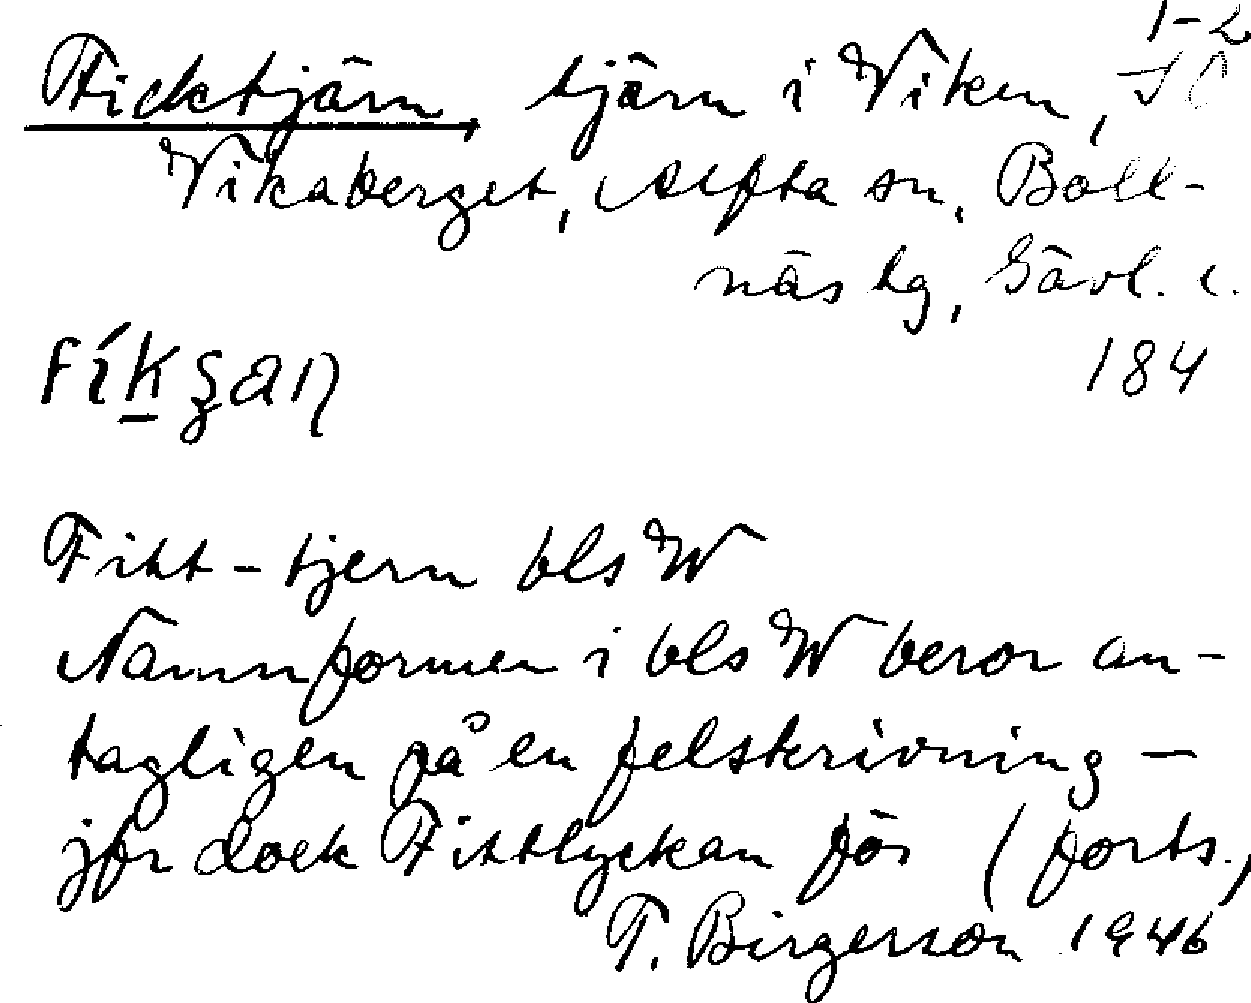 1-2
Ficktjärn, tjärn i Viken,
Vikaberget, Alfta sn, Boll-
näs tg, Gävl. l.
184
Fitt-tjern bls W
Namnformen i bls W beror an-
tagligen på en felskrivning —
jfr dock Fittlyckan för (forts.)
T. Birgerson 1946